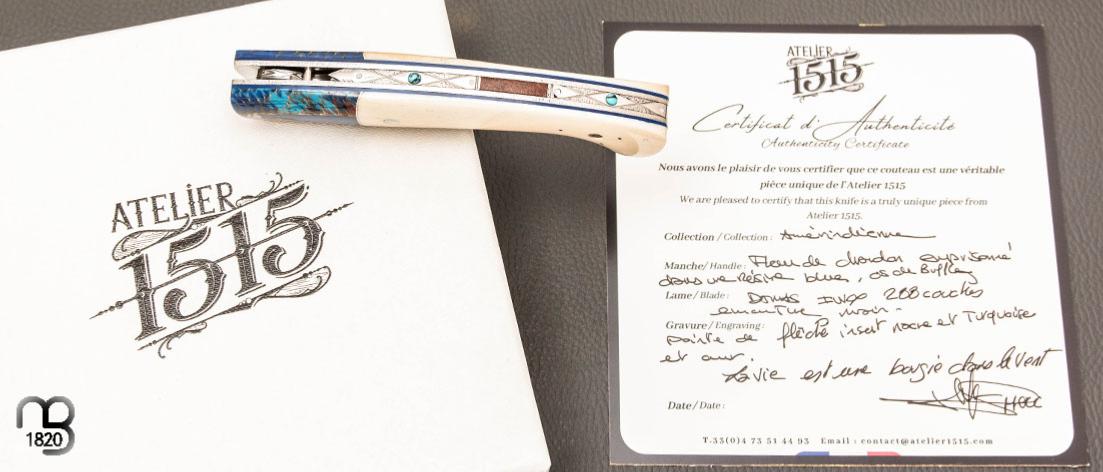 ATELIER
1515
NB
1820
ATELIER
1515
Certificat d'Authenticité
Authenticity Certificate
Nous avons le plaisir de vous certifier que ce couteau est une véritable
pièce unique de l'Atelier 1515
We are pleased to certify that this knife is a truly unique piece from
Atelier 1515.
Collection / Collection : Amérindienne
Manche/Handle : Fleur de chardon emprisonné
dans une Résine bleue, os de Buffle
Lame / Blade : Damas inox 200 couches
noir.
Gravure / Engraving : 
pointe de flèche insert nacre et Turquoise
et cuir.
La vie est une bougie dans le vent
Date / Date :
T.33(0)4 73 51 44 93 Email : contact@atelier1515.com